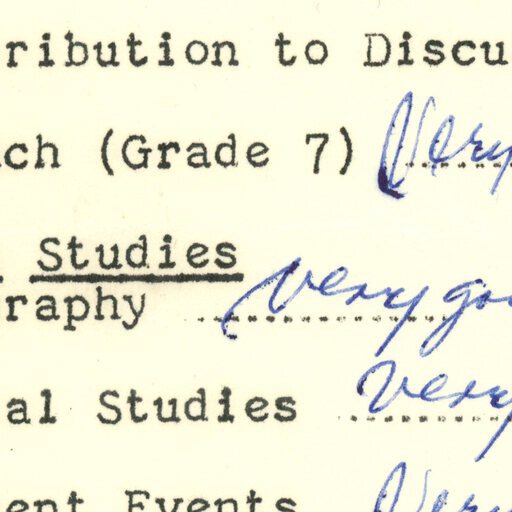 ribution to Discu
ch (Grade 7) Very
Studies
raphy very goo
al Studies very
ent Events Very